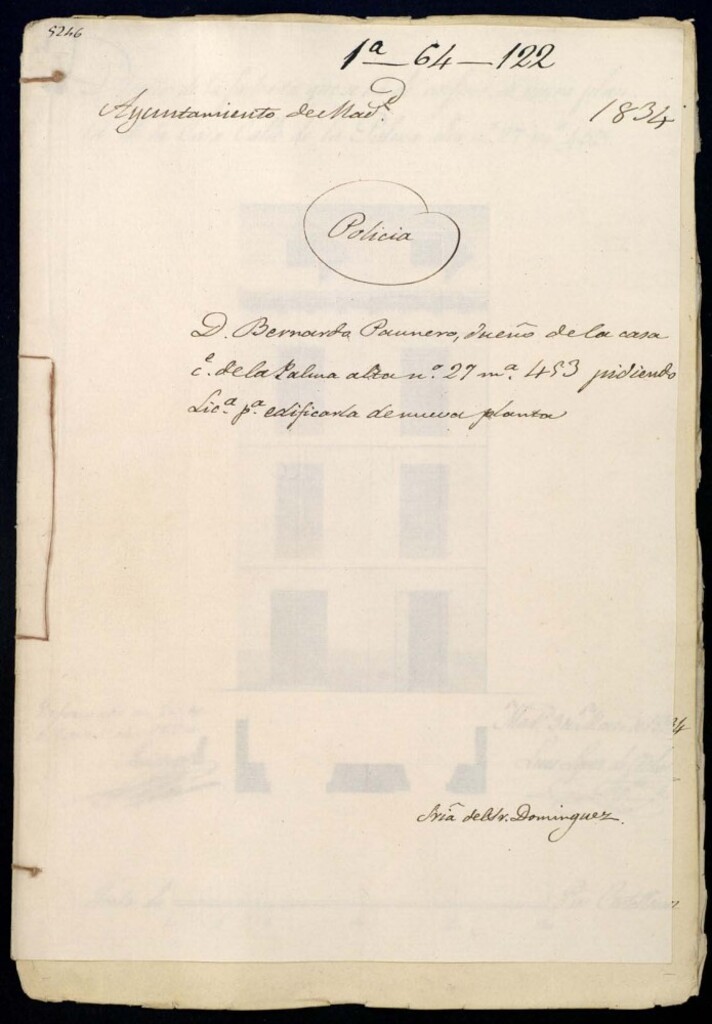 5246
1ª - 64 - 122
Ayuntamiento de Madᵈ.
1834
Policia
D. Bernardo Paunero, dueño de la casa
c.ᵉ de la Palma alta n.º 27 m.ª 453 pidiendo
Lic.ª p.ª edificarla de nueva planta
Sria del Sr. Dominguez.